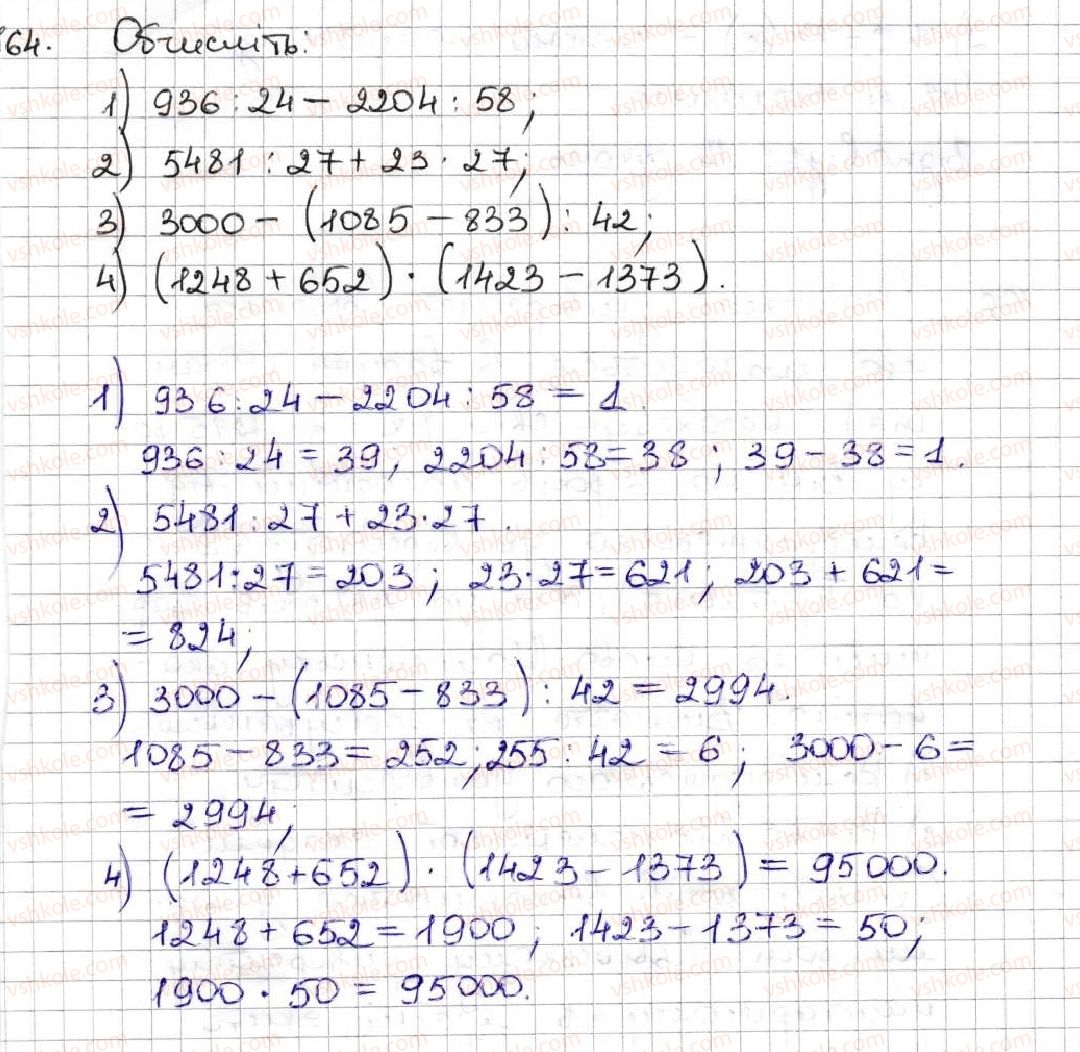 64. Обчисліть:
1) 936 : 24 - 2204 : 58;
2) 5481 : 27 + 23 · 27;
3) 3000 - (1085 - 833) : 42;
4) (1248 + 652) · (1423 - 1373).
1) 936 : 24 - 2204 : 58 = 1.
936 : 24 = 39, 2204 : 58 = 38 ; 39 - 38 = 1.
2) 5481 : 27 + 23 · 27.
5481 : 27 = 203 ; 23 · 27 = 621 ; 203 + 621 =
= 824;
3) 3000 - (1085 - 833) : 42 = 2994.
1085 - 833 = 252 ; 255 : 42 = 6 ; 3000 - 6 =
= 2994;
4) (1248 + 652) · (1423 - 1373) = 95000.
1248 + 652 = 1900 ; 1423 - 1373 = 50 ;
1900 · 50 = 95000.